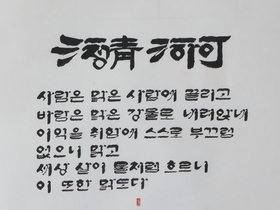 淸河
사람은 맑은 사람에 끌리고
바람은 맑은 강물로 내려앉네
이익을 취함에 스스로 부끄럼
없으니 맑고
세상 살이 물처럼 흐르니
이 또한 맑도다